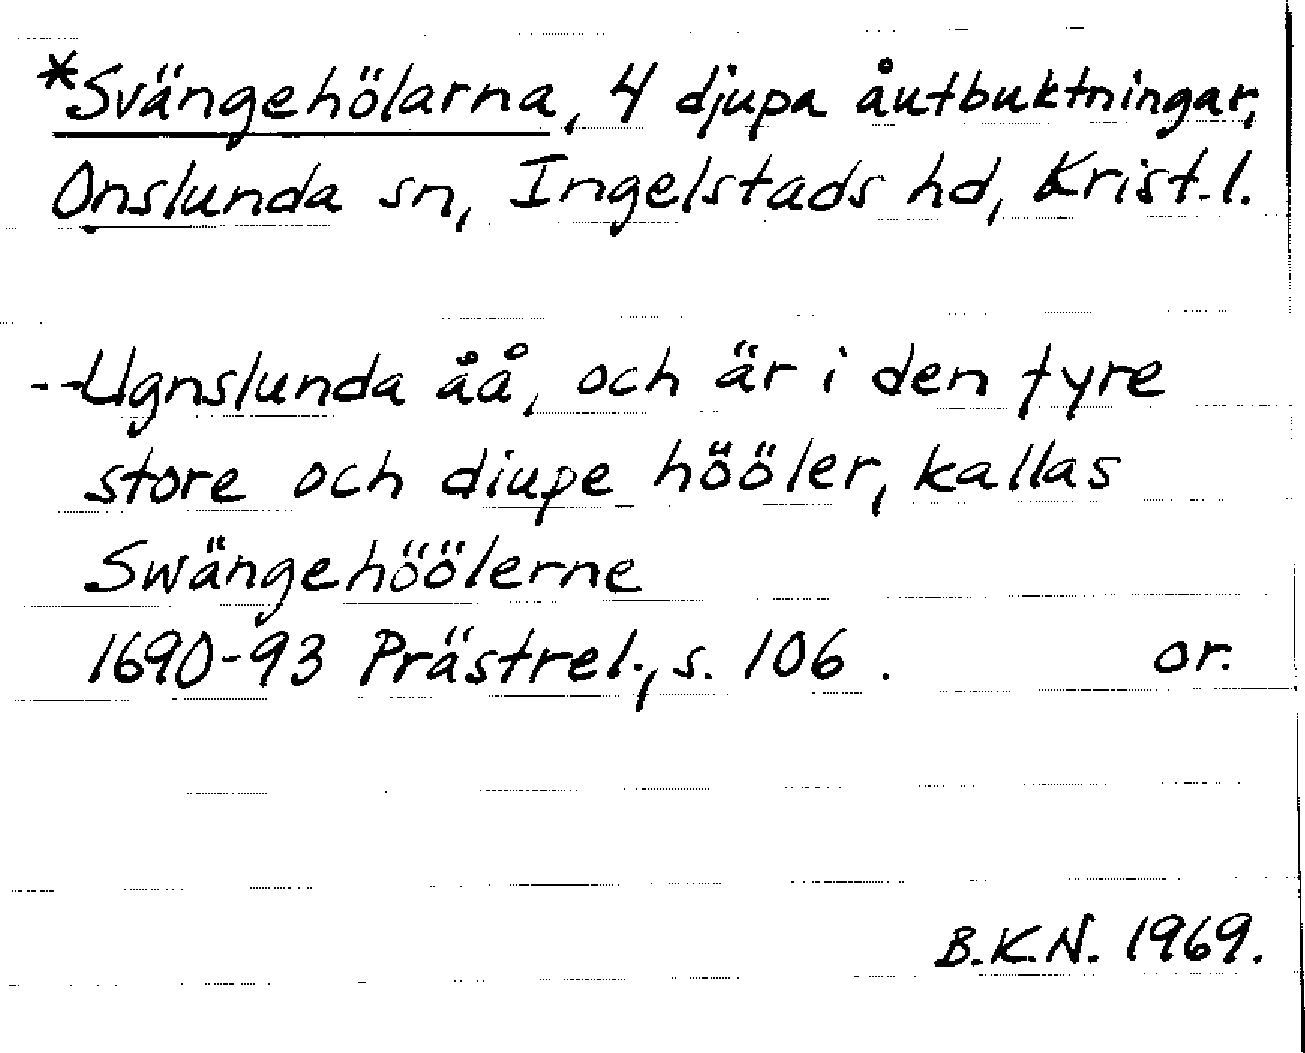 *Svängehölarna, 4 djupa åutbuktningar,
Onslunda sn, Ingelstads hd, Krist. l.
--Ugnslunda åå, och är i den fyre
store och diupe hööler, kallas
Swängehöölerne
1690-93 Prästrel., s. 106. or.
B.K.N. 1969.